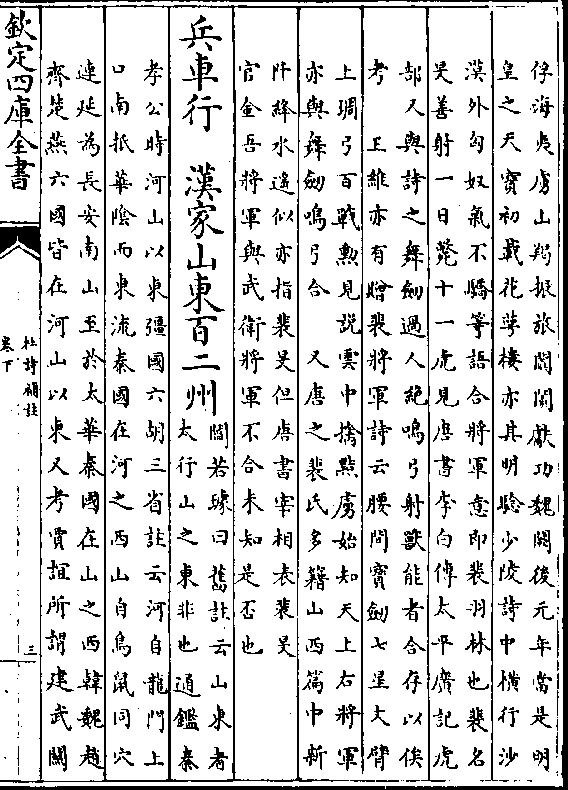 俘海夷虜山羯振旅闐闐獻功魏闕後元年當是明
皇之天寶初載花萼樓亦其明騐少陵詩中橫行沙
漠外匈奴氣不驕等語合將軍意即裴羽林也裴名
旻善射一日斃十一虎見唐書李白傳太平廣記虎
部又與詩之舞劒過人絶鳴弓射獸能者合存以俟
考 王維亦有贈裴將軍詩云腰間寶劒七星文臂
上琱弓百戰勲見説雲中擒黠虜始知天上右將軍
亦與舞劒鳴弓合 又唐之裴氏多籍山西篇中新
阡絳水遥似亦指裴旻但唐書宰相表裴旻
官金吾將軍與武衛將軍不合未知是否也
兵車行 漢家山東百二州
閻若璩曰舊註云山東者
太行山之東非也通鑑秦
孝公時河山以東彊國六胡三省註云河自龍門上
口南抵華陰而東流秦國在河之西山自鳥鼠同穴
連延為長安南山至於太華秦國在山之西韓魏趙
齊楚燕六國皆在河山以東又考賈誼所謂建武關
欽定四庫全書
杜詩補註
卷下
三